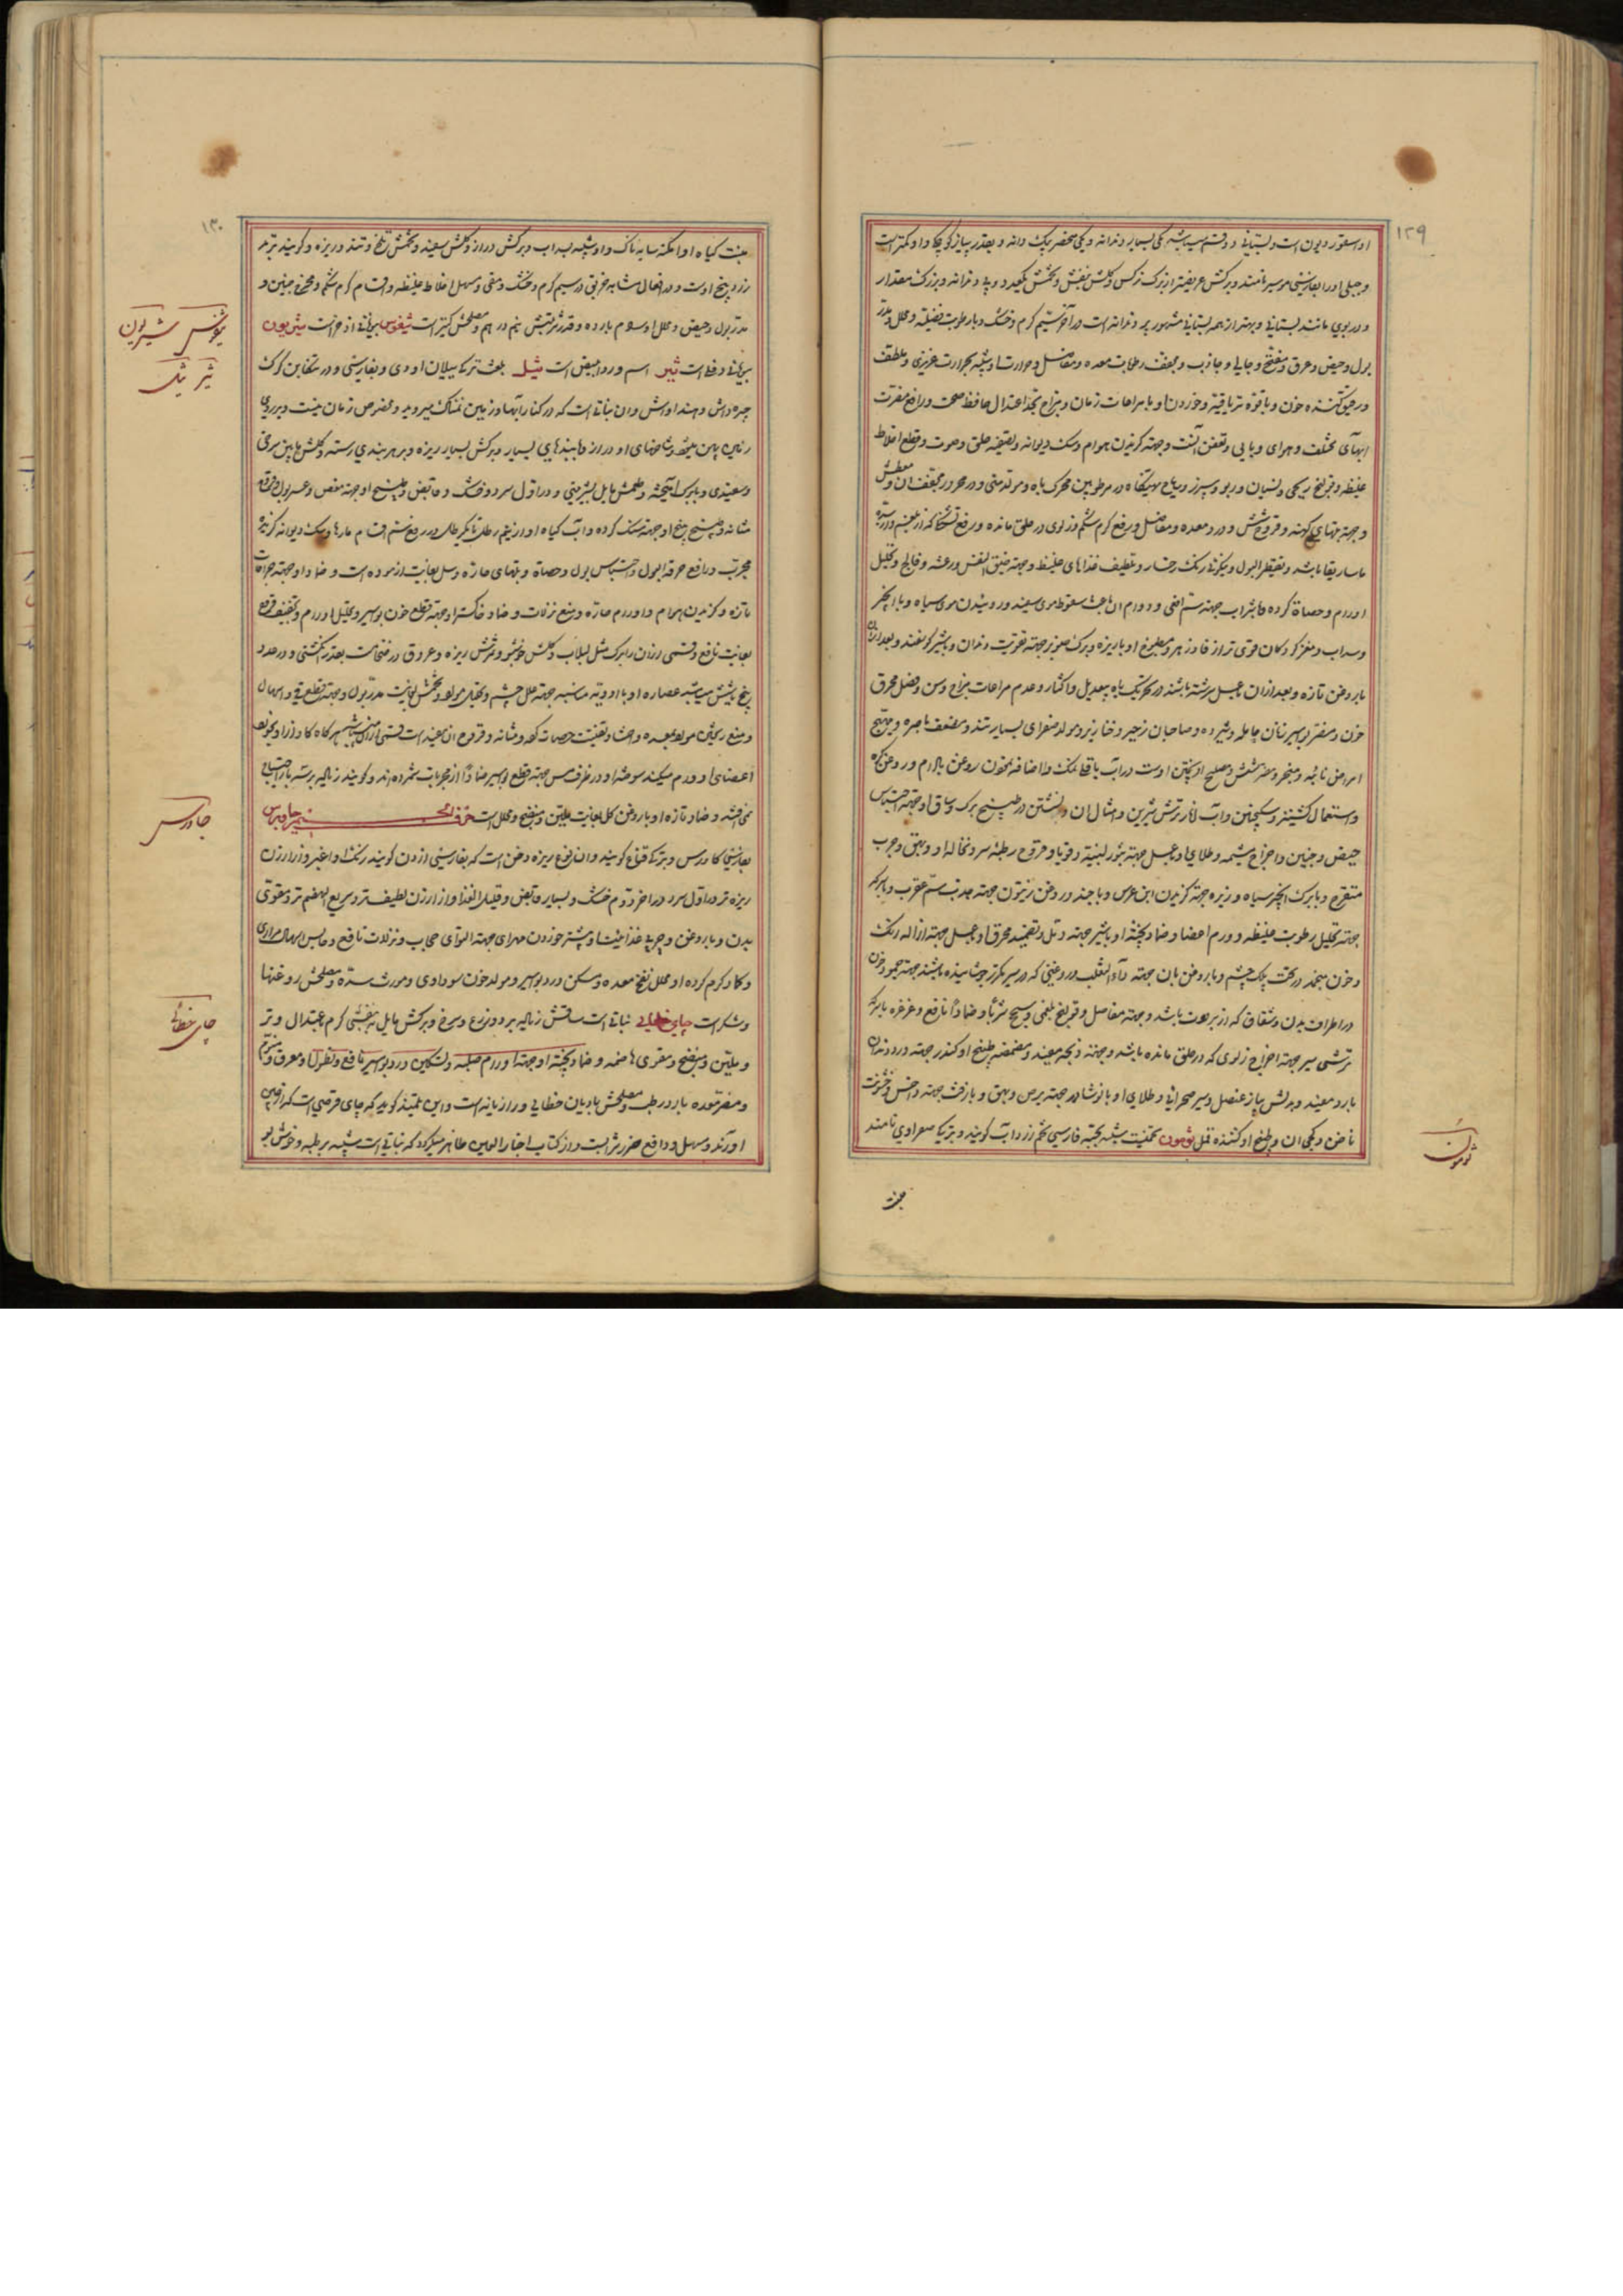 ۱۲۹
او اسقوردیون است و بستانی دو قسم میباشد یکی بسیار دندانه و یکی منحصر بیک دانه و بقدر پیاز کوچکی و او کمتر است
و جبلی او را بفارسی موسیر نامند و برکش عریضتر از برک نرکس و کلش بنفش و تخمش
و در بوی مانند بستانی و بهتر از همه بستانی مشهور پر دندانه است در آخر سیم کرم و خشک و با رطوبت فضلیه و محلل و مدر
بول و حیض و عرق و مفتح و جالی و جاذب و مجفف رطوبات معده و مفاصل و حرارت او شبیه بحرارت غریزی و ملطف
و رقیق کننده خون و با قوه تریاقیه و خوردن او با مراعات زمان و مزاج بحد اعتدال حافظ صحت و رافع مضرت
آبهای مختلف و هوای وبایی و تعفن آنست و جهة کزیدن هوام و سک دیوانه و تصفیه حلق و صوت و قطع اخلاط
غلیظه و قولنج ریحی و نسیان و ربو و سپرز در مرطوبین محرک باه و مولد منی و در محرور مجفف آن و معطش
و جهة تبهای کهنه و قروح شش و درد معده و مفاصل و رفع کرم شکم و زلوی در حلق مانده و رفع تشنکی که از بلغم
ماساریقا باشد و تقطیر البول و نیکوئی رنک رخسار و تلطیف غذاهای غلیظ و جهة ضیق النفس و رعشه و فالج و تحلیل
اورام و حصاة کرده و با شراب جهة سم افعی و دوام آن باعث سقوط موی سفید و روئیدن موی سیاه و با انجیر
و سداب و مغز کردکان قوی تر از فادزهر و مطبوخ او با زیره و برک صنوبر جهة تقویت دندان و با شیر کوسفند و بعد از آن
با روغن تازه و بعد از آن با عسل سرشته باشند در تحریک باه بیعدیل و اکثار و عدم مراعات مزاج و سن و فصل محرق
خون و مضر بواسیر و زنان حامله و شیرده و صاحبان زحیر و خنازیر و مولد صفرای بسیار تند و مضعف باصره و مهیج
امراض نائبه و مبخر و مضر شش و مصلح او پختن اوست در آب با قلیل نمک و اضافه نمودن روغن بادام و روغن
و استعمال کشنیز و سکنجبین و آب انار ترش شیرین و امثال آن و نشستن در طبیخ برک و ساق او جهة احتباس
حیض و جنین و اخراج مشیمه و طلای او با عسل جهة بثور لبنیه و قوبا و قروح رطبه سر و نخاله او و بهق و جرب
متقرح و با برک انجیر سیاه و زیره جهة کزیدن ابن عرس و با جند در روغن زیتون جهة جذب سم عقرب و با سرکه
جهة تحلیل رطوبت غلیظه و ورم اعضا و ضماد پخته او با شیر جهة دمل و تضمید محرق او با عسل جهة ازاله رنک
و خون منجمد در تحت پلک چشم و با روغن بان جهة داء الثعلب و روغنی که در سیر مکرر جوشانیده باشند جهة جمود خون
در اطراف بدن و شقاق که از برودت باشد و جهة مفاصل و قولنج بلغمی و ریحی شربا و ضمادا نافع و غرغره با سرکه
ترشی سیر جهة اخراج زلوی که در حلق مانده باشد و جهة ذبحه مفید و مضمضه طبیخ او کندر جهة درد دندان
بارد مفید و بدلش پیاز عنصل و سیر صحرائی و طلای او با نوشادر جهة برص و بهق و با زفت جهة داحس و خشونت
ناخن و کجی آن و طبیخ او کشنده قمل ثومون بخمنیت شبیه بحبه فارسی تخم زردآب کویند و بترکی صحراوی نامند
ثومون
منبت
۱۳۰
منبت کیاه او امکنه سایه ناک و او شبیه بسداب و برکش دراز و کلش سفید و تخمش تلخ و تند و ریزه و کویند تربد
زرد بیخ اوست و در افعال مشابه خربق در سیم کرم و خشک و مقی و مسهل اخلاط غلیظه و اقسام کرم شکم و مخرج جنین و
مدر بول و حیض و محلل اورام بارده و قدر شربتش نیم درهم و مصلحش کتیرا است ثیغوس بیونانی اذخر است ثیریون
بیونانی دفلی است ثیر اسم ورد ابیض است ثیل بلغت ترکی سیلان اودی و بفارسی و در تنکابن کرک
چره واش و بهند او اش و آن نباتی است که در کنار آبها و زمین نمناک میروید و مخصوص زمان نیست و بر روی
زمین پهن میشود و شاخهای او دراز و با بندهای بسیار و برکش بسیار ریزه و بر هر بندی رسته و کلش مابین سرخی
و سفیدی و با برک آمیخته و طعمش مایل بشیرینی و در اول سرد و خشک و قابض و طبیخ او جهة مغص و عسر بول و قرحه
مثانه و طبیخ بیخ او جهة سنک کرده و آب کیاه او از نیم رطل تا یکرطل در رفع سم اقسام مارها و سک دیوانه کزیده
مجرب و رافع حرقة البول و احتباس بول و حصاة و تبهای حاره و سل بغایت آزموده است و ضماد او جهة جراحات
تازه و کزیدن هوام و اورام حاره و منع نزلات و ضماد خاکستر او جهة قطع خون بواسیر و تحلیل اورام و تجفیف قروح
بغایت نافع و قسمی از آن را برک مثل لبلاب و کلش خوشبو و ثمرش ریزه و عروق در ضخامت بقدر انکشتی و در عدد
پنج یا شش میباشد عصاره او با ادویه مناسبه جهة علل چشم و تخمش بغایت مدر بول و جهة قطع قی و اسهال
و منع ریختن مواد بمعده و احشا و تفتیت حصات کلیه و مثانه و قروح آن مفید است قسمی از آن
اعضای او ورم میکند و در ظرف مس جهة قطع بواسیر ضمادا از مجربات شمرده اند و کویند زیاده بر سه بار احتیاج
نمی افتد و ضماد تازه او با روغن کل بغایت ملین و منضج و محلل است حرف الجیم جاورس
بفارسی کاورس و بترکی قوناغ کویند و آن نوع ریزه دخن است که بفارسی ارزن کویند رنک او اغبر و از ارزن
ریزه تر در اول سرد و در آخر دوم خشک و بسیار قابض و قلیل الغذا و از ارزن لطیف تر و سریع الهضم تر و مقوی
بدن و با روغن و چربی غذائیت او بیشتر خوردن مهرای جهة التوای حجاب و نزلات نافع و حابس اسهال مراری
و کماد کرم کرده او محلل نفخ معده و مسکن درد بواسیر و مولد خون سوداوی و مورث سده و مصلحش روغنها
و شکر است چای خطائی نباتی است ساقش زیاده بر دو ذرع و سرخ و برکش مایل به بنفشی کرم باعتدال و تر
و ملین و منضج و مقوی هاضمه و ضماد پخته او جهة اورام صلبه و تسکین درد بواسیر نافع و نطول او معرق و منوم
و مضر معده بارد رطب و مصلحش بادیان خطایی و رازیانه است و ابن تلمیذ کوید که چای قرصی است که از چین
آورند و مسهل و دافع ضرر شراب است و از کتاب اختیارالعین ظاهر میکردد که نباتی است شبیه برطبه و خوش بو
ثیغوس ثیریون
ثیر ثیل
جاورس
چای خطائی